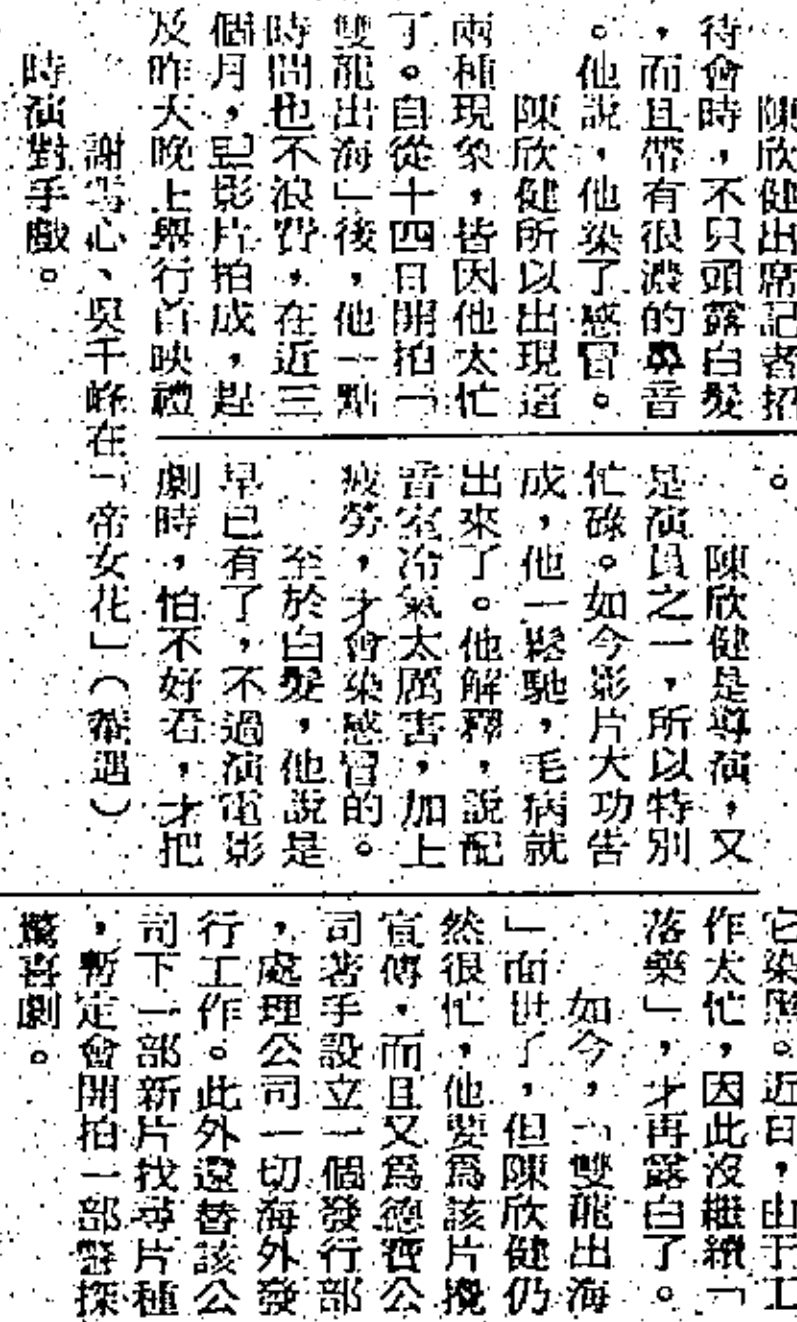 陳欣健出席記者招
待會時，不只頭露白髮
，而且帶有很濃的鼻音
。他說，他染了感冒。
陳欣健所以出現這
兩種現象，皆因他太忙
了。自從十四日開拍「
雙龍出海」後，他一點
時間也不浪費，在近三
個月，影片拍成，趕
及昨天晚上舉行首映禮
。
陳欣健是導演，又
是演員之一，所以特別
忙碌。如今影片大功告
成，他一鬆馳，毛病就
出來了。他解釋，說配
音室冷氣太厲害，加上
疲勞，才會染感冒的。
至於白髮，他說是
早已有了，不過演電影
劇時，怕不好看，才把
它染黑。近日，由于工
作太忙，因此沒繼續「
落藥」，才再露白了。
如今，「雙龍出海
」面世了，但陳欣健仍
然很忙，他要爲該片攪
宣傳，而且又爲德寶公
司著手設立一個發行部
，處理公司一切海外發
行工作。此外還替該公
司下一部新片找尋片種
，暫定會開拍一部警探
驚喜劇。
謝雪心、吳千峰在「帝女花」（菴遇）
時演對手戲。